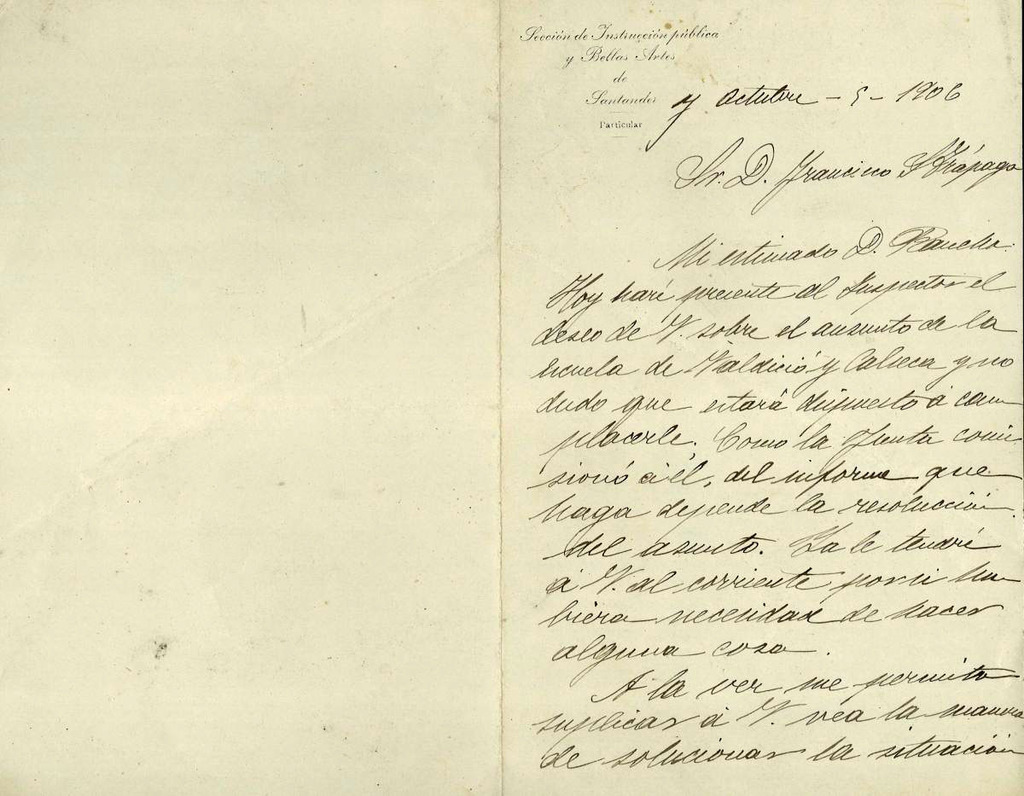 Sección de Instrucción pública
y Bellas Artes
de
Santander
Particular
y Octubre - 5 - 1906
Sr. D. Francisco S Trápaga
Mi estimado D. Pancho:
Hoy haré presente al Inspector el
deseo de V. sobre el asunto de la
escuela de Valdició y Calseca y no
dudo que estará dispuesto á com
placerle. Como la Junta comi
sionó á él, del informe que
haga depende la resolución
del asunto. Ya le tendré
á V. al corriente por si hu
biera necesidad de hacer
alguna cosa.
A la vez me permito
suplicar á V. vea la manera
de solucionar la situación